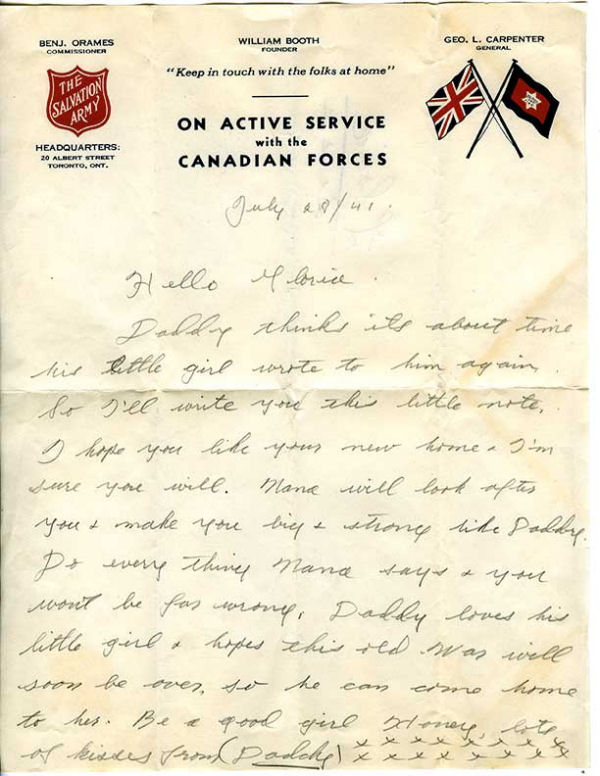 BENJ. ORAMES
COMMISSIONER
WILLIAM BOOTH
FOUNDER
GEO. L. CARPENTER
GENERAL
"Keep in touch with the folks at home"
THE
SALVATION
ARMY
ON ACTIVE SERVICE
with the
CANADIAN FORCES
HEADQUARTERS:
20 ALBERT STREET
TORONTO, ONT.
July 28/41.
Hello Gloria.
Daddy thinks its about time
his little girl wrote to him again.
So I'll write you this little note.
I hope you like your new home & I'm
sure you will. Nana will look after
you & make you big & strong like Daddy.
Do every thing Nana says & you
wont be far wrong. Daddy loves his
little girl & hopes this old War will
soon be over, so he can come home
to her. Be a good girl Honey, lots
of kisses from (Daddy) x x x x x x x x x
x x x x x x x x x